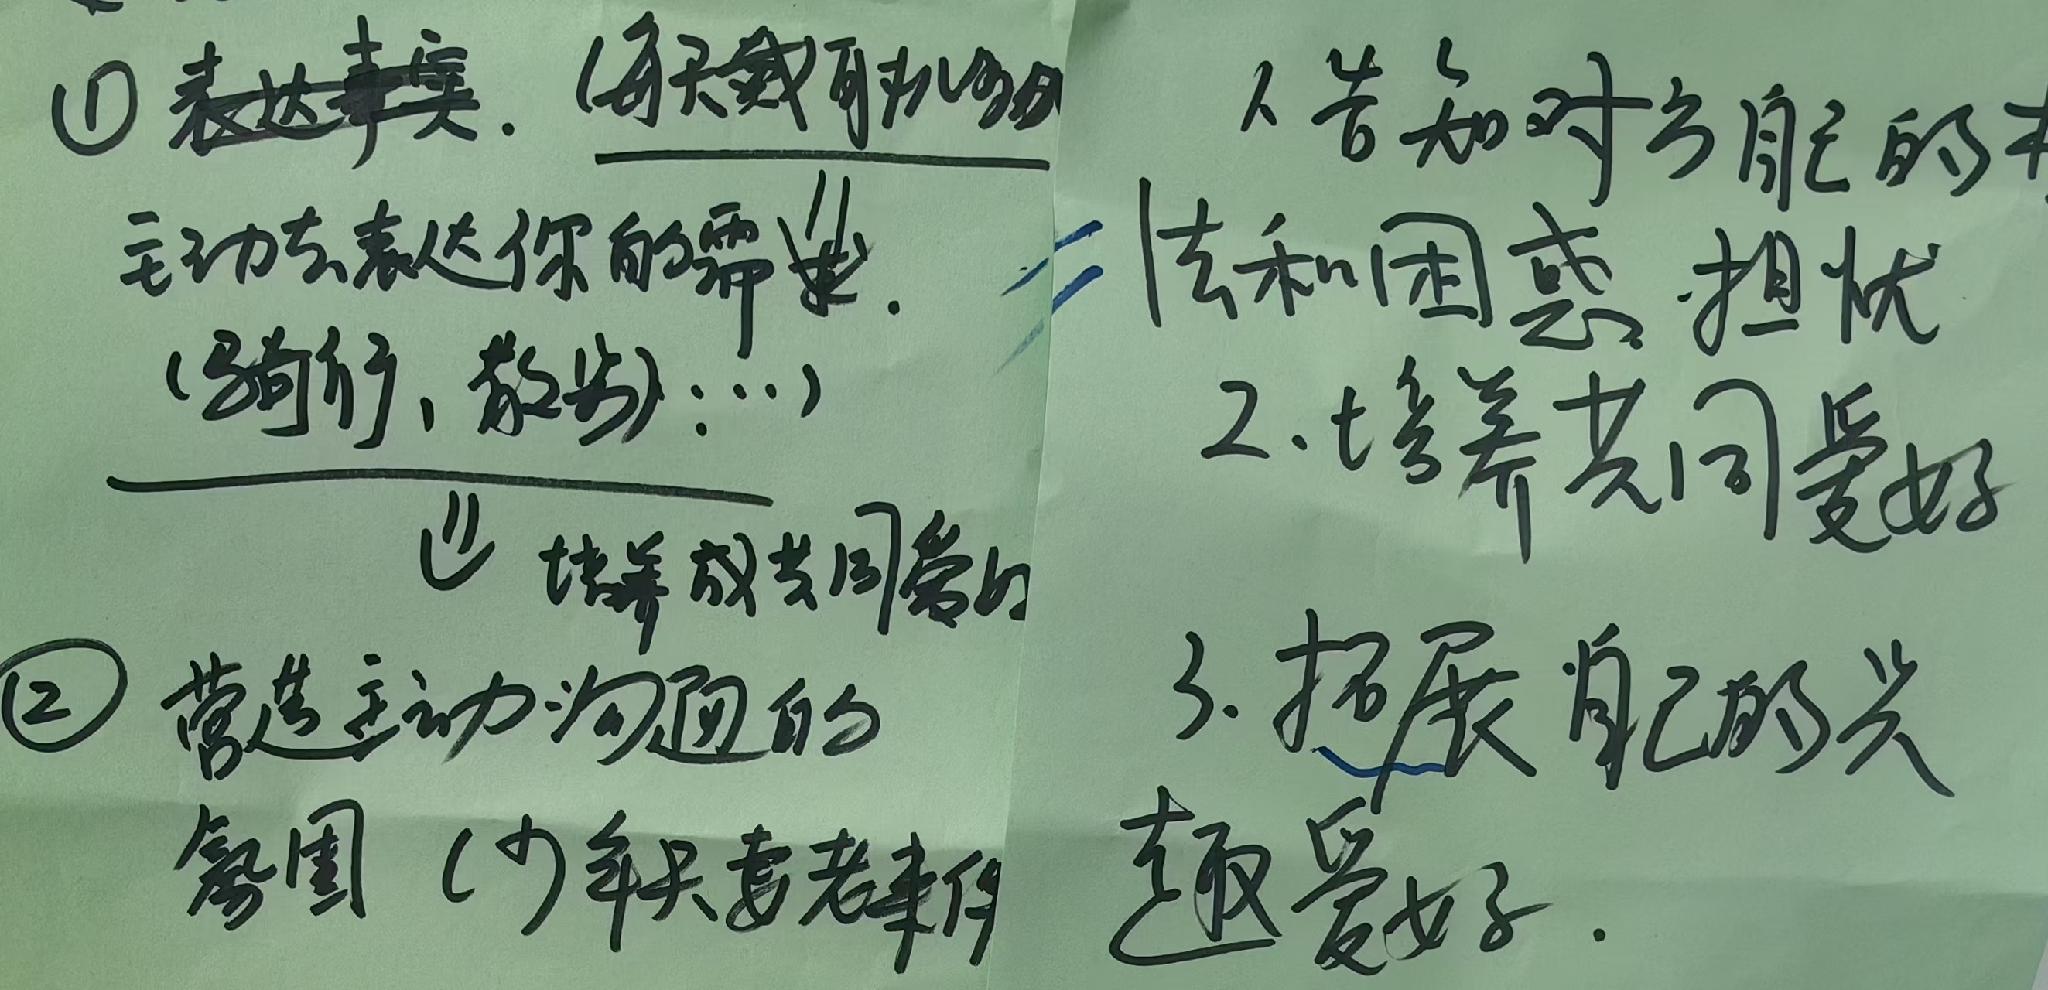 ① 表达事实. (每天戴耳机
主动去表达你的需要.
(骑行、散步):…)
培养成共同爱
② 营造主动沟通的
氛围 (少年夫妻老来伴
1.告知对方自己的
法和困惑.担忧
2.培养共同爱好
3.拓展自己的兴
趣爱好.